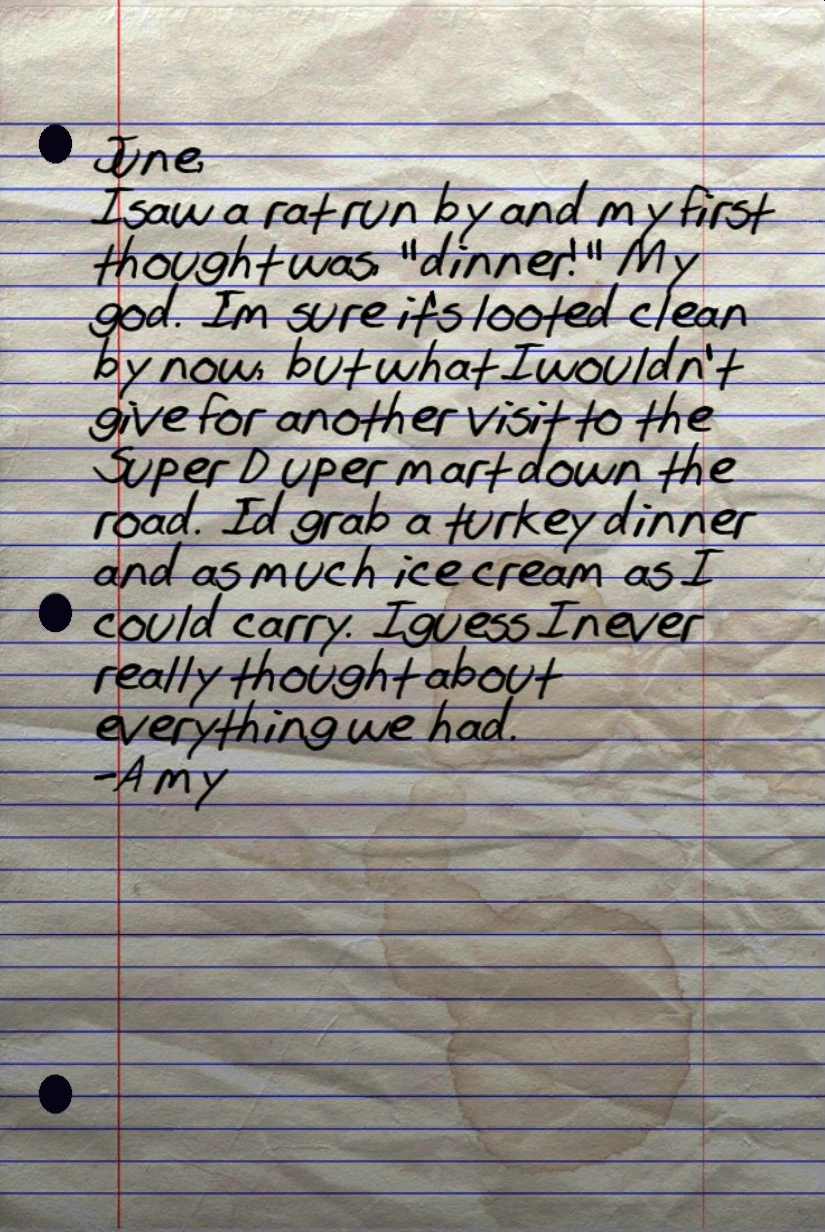 June,
I saw a rat run by and my first
thought was, "dinner!" My
god. Im sure it's looted clean
by now, but what I wouldn't
give for another visit to the
Super Duper mart down the
road. Id grab a turkey dinner
and as much ice cream as I
could carry. I guess I never
really thought about
everything we had.
-Amy